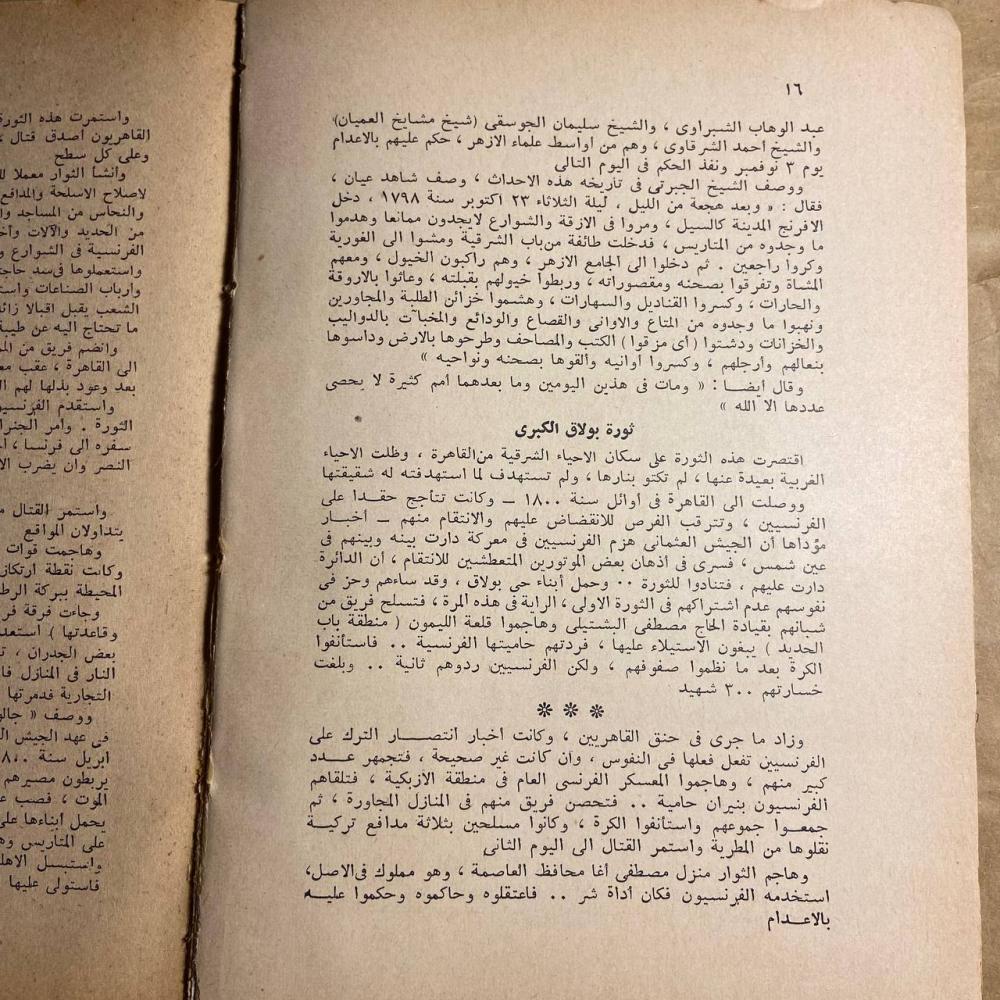 ١٦
عبد الوهاب الشبراوى ، والشيخ سليمان الجوسقى (شيخ مشايخ العميان)
والشيخ احمد الشرقاوى ، وهم من أواسط علماء الازهر ، حكم عليهم بالاعدام
يوم ٣ نوفمبر ونفذ الحكم فى اليوم التالى
ووصف الشيخ الجبرتى فى تاريخه هذه الاحداث ، وصف شاهد عيان ،
فقال : « وبعد هجعة من الليل ، ليلة الثلاثاء ٢٣ اكتوبر سنة ١٧٩٨ ، دخل
الافرنج المدينة كالسيل ، ومروا فى الازقة والشوارع لايجدون ممانعا وهدموا
ما وجدوه من المتاريس ، فدخلت طائفة من باب الشرقية ومشوا الى الغورية
وكروا راجعين . ثم دخلوا الى الجامع الازهر ، وهم راكبون الخيول ، ومعهم
المشاة وتفرقوا بصحنه ومقصوراته ، وربطوا خيولهم بقبلته ، وعاثوا بالاروقة
والحارات ، وكسروا القناديل والسهارات ، وهشموا خزائن الطلبة والمجاورين
ونهبوا ما وجدوه من المتاع والاوانى والقصاع والودائع والمخبآت بالدواليب
والخزانات ودشتوا ( أى مزقوا ) الكتب والمصاحف وطرحوها بالارض وداسوها
بنعالهم وأرجلهم ، وكسروا أوانيه وألقوها بصحنه ونواحيه »
وقال أيضا : « ومات فى هذين اليومين وما بعدهما أمم كثيرة لا يحصى
عددها الا الله »
ثورة بولاق الكبرى
اقتصرت هذه الثورة على سكان الاحياء الشرقية من القاهرة ، وظلت الاحياء
الغربية بعيدة عنها ، لم تكتو بنارها ، ولم تستهدف لما استهدفته له شقيقتها
ووصلت الى القاهرة فى أوائل سنة ١٨٠٠ ــ وكانت تتأجج حقدا على
الفرنسيين ، وتترقب الفرص للانقضاض عليهم والانتقام منهم ــ أخبار
مؤداها أن الجيش العثمانى هزم الفرنسيين فى معركة دارت بينه وبينهم فى
عين شمس ، فسرى فى أذهان بعض الموتورين المتعطشين للانتقام ، أن الدائرة
دارت عليهم ، فتنادوا للثورة ٠٠ وحمل أبناء حى بولاق ، وقد ساءهم وحز فى
نفوسهم عدم اشتراكهم فى الثورة الاولى ، الراية فى هذه المرة ، فتسلح فريق من
شبانهم بقيادة الحاج مصطفى البشتيلى وهاجموا قلعة الليمون ( منطقة باب
الحديد ) يبغون الاستيلاء عليها ، فردتهم حاميتها الفرنسية .. فاستأنفوا
الكرة بعد ما نظموا صفوفهم ، ولكن الفرنسيين ردوهم ثانية .. وبلغت
خسارتهم ٣٠٠ شهيد
* * *
وزاد ما جرى فى حنق القاهريين ، وكانت أخبار انتصار الترك على
الفرنسيين تفعل فعلها فى النفوس ، وان كانت غير صحيحة ، فتجمهر عدد
كبير منهم ، وهاجموا المعسكر الفرنسى العام فى منطقة الازبكية ، فتلقاهم
الفرنسيون بنيران حامية .. فتحصن فريق منهم فى المنازل المجاورة ، ثم
جمعوا جموعهم واستأنفوا الكرة ، وكانوا مسلحين بثلاثة مدافع تركية
نقلوها من المطرية واستمر القتال الى اليوم الثانى
وهاجم الثوار منزل مصطفى أغا محافظ العاصمة ، وهو مملوك فى الاصل،
استخدمه الفرنسيون فكان أداة شر .. فاعتقلوه وحاكموه وحكموا عليه
بالاعدام
واستمرت هذه الثورة
القاهريون أصدق قتال ،
وعلى كل سطح
وانشأ الثوار معملا
لاصلاح الاسلحة والمدافع
والنحاس من المساجد
من الحديد والآلات
الفرنسية فى الشوارع
واستعملوها فى سد
وأرباب الصناعات
الشعب يقبل اقبالا
ما تحتاج اليه عن
وانضم فريق من
الى القاهرة ، عقب
بعد وعود بذلها لهم
واستقدم
الثورة . وأمر
سفره الى فرنسا ،
النصر وان يضرب
واستمر القتال
يتداولان المواقع
وهاجمت قوات
وكانت نقطة
المحيطة ببركة
وجاءت فرقة
وقاعدتها )
بعض الجدران ،
النار فى المنازل
التجارية فدمرتها
ووصف «
فى عهد الجيش
أبريل سنة
يربطون مصيرهم
الموت ، فصب
يحمل أبناءها
على المتاريس
واستبسل
فاستولى عليها